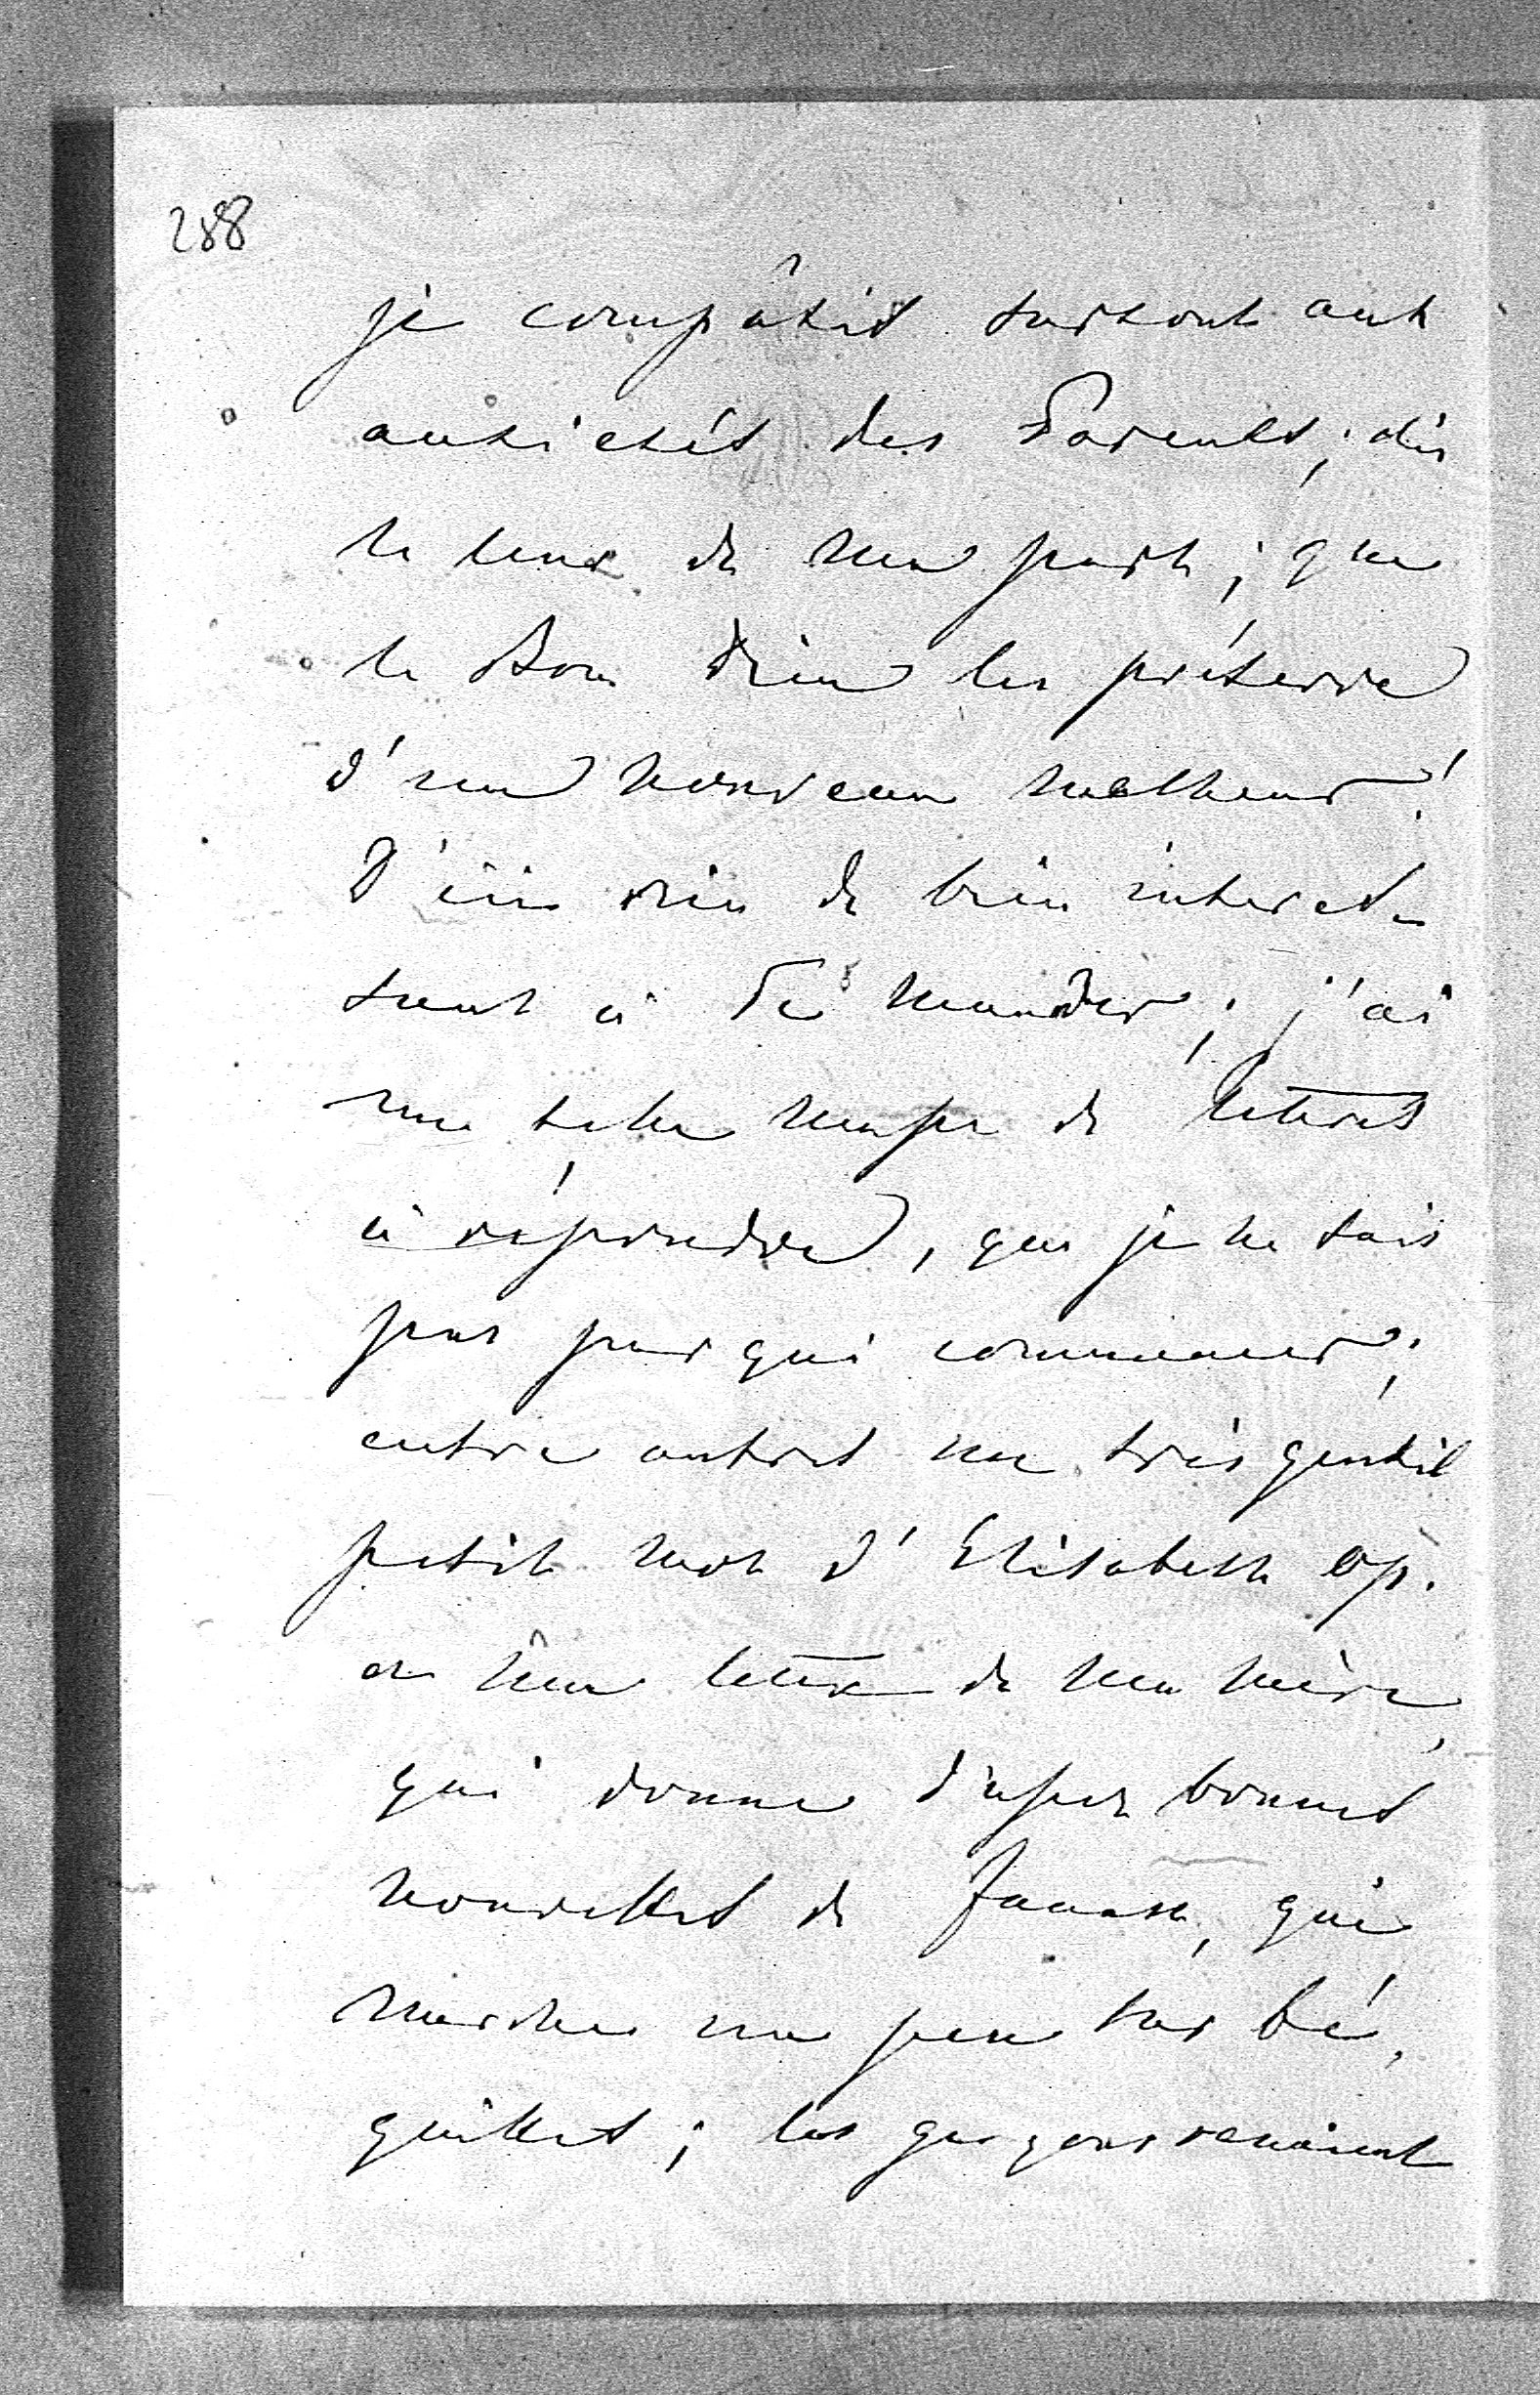 288
je compâtis surtout aux
anxietés des Parents; dis
le leur de ma part; que
le Bon Dieu les préserve
d'un nouveau malheur!
rien de bien interes-
sant à Te mander; j'ai
une telle masse de lettres
à répondre, que je ne sais
pas par qui commencer;
entre autres un très gentil
petit mot d'Elisabeth Op.
et une lettre de ma mère,
qui donne d'assez bonnes
nouvelles de, qui
marche un peu sur bé-
quilles; les garçons venaient